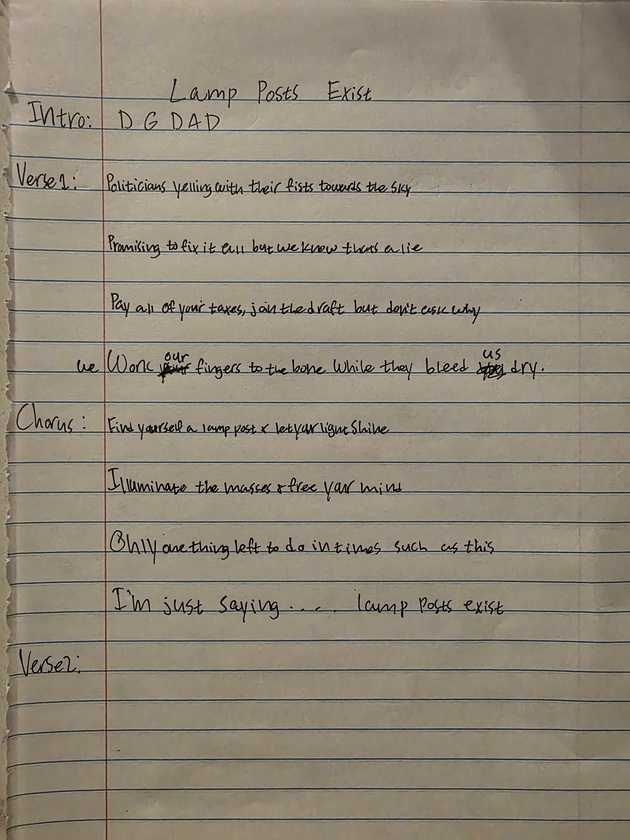 Lamp Posts Exist
Intro: D G DAD
Verse1: Politicians yelling with their fists towards the sky
Promising to fix it all but we know thats a lie
Pay all of your taxes, join the draft but don't ask why
we Work our fingers to the bone while they bleed us dry.
Chorus: Find yourself a lamp post & let your light Shine
Illuminate the masses & free your mind
Only one thing left to do in times such as this
I'm just saying.... lamp posts exist
Verse2: